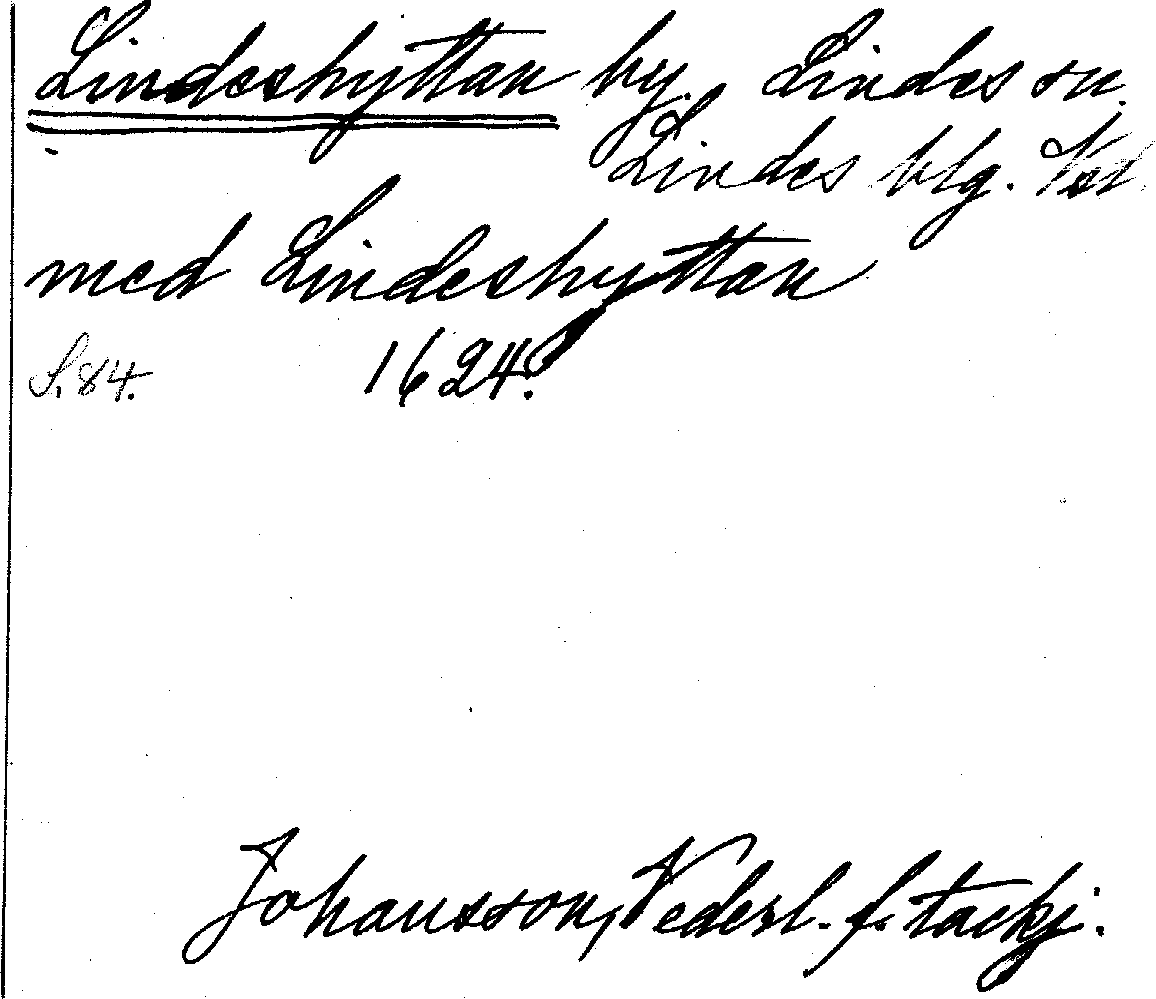 Lindeshyttan by. Lindes sn.
Lindes blg. Vstl.
med Lindeshyttan
S. 84. 1624.
Johansson, Vederl. f. tackj.